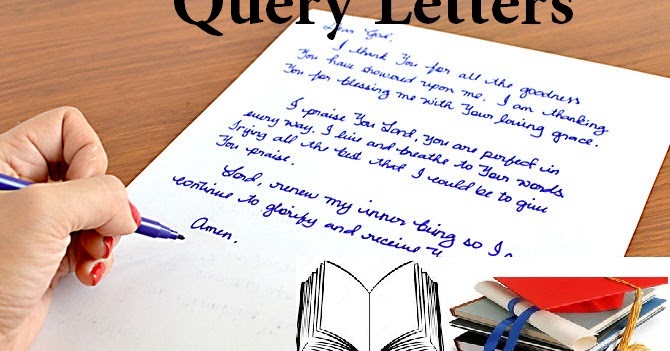 Query Letters
Dear God,
I thank You for all the goodness
You have showered upon me. I am thanking
You for blessing me with Your loving grace.
I praise You Lord, You are perfect in
every way. I live and breathe to Your words
Trying all the best that I could be to give
You praise.
Lord, renew my inner being so I
continue to glorify and receive
Amen.